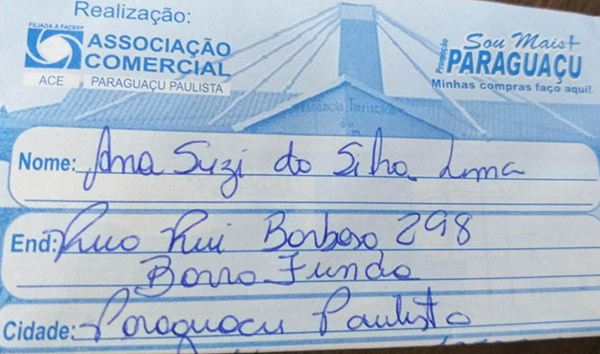 Realização:
FILIADA À FACESP
ASSOCIAÇÃO
COMERCIAL
ACE PARAGUAÇU PAULISTA
Promoção
Sou Mais+
PARAGUAÇU
Minhas compras faço aqui!
Estância Turística
Nome: Ana Suzi da Silva Lima
End: Rua Rui Barbosa 298
Barra Funda
Cidade: Paraguaçu Paulista